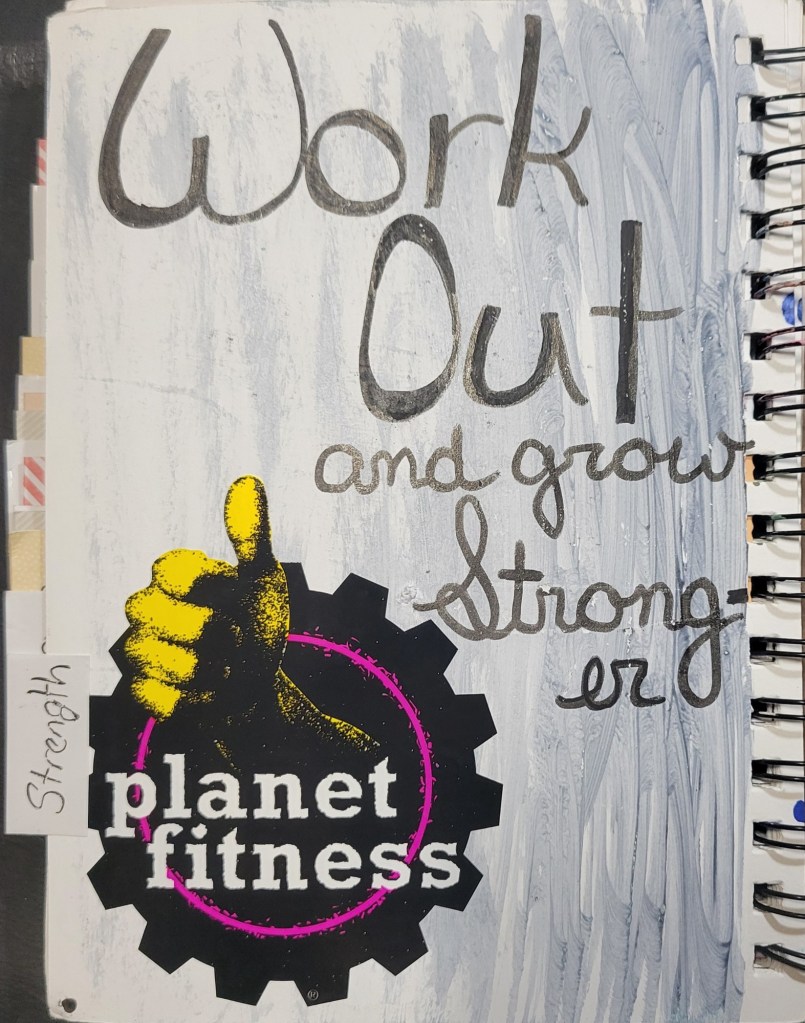 Work
Out
and grow
Strong-
er
Strength
planet
fitness
®